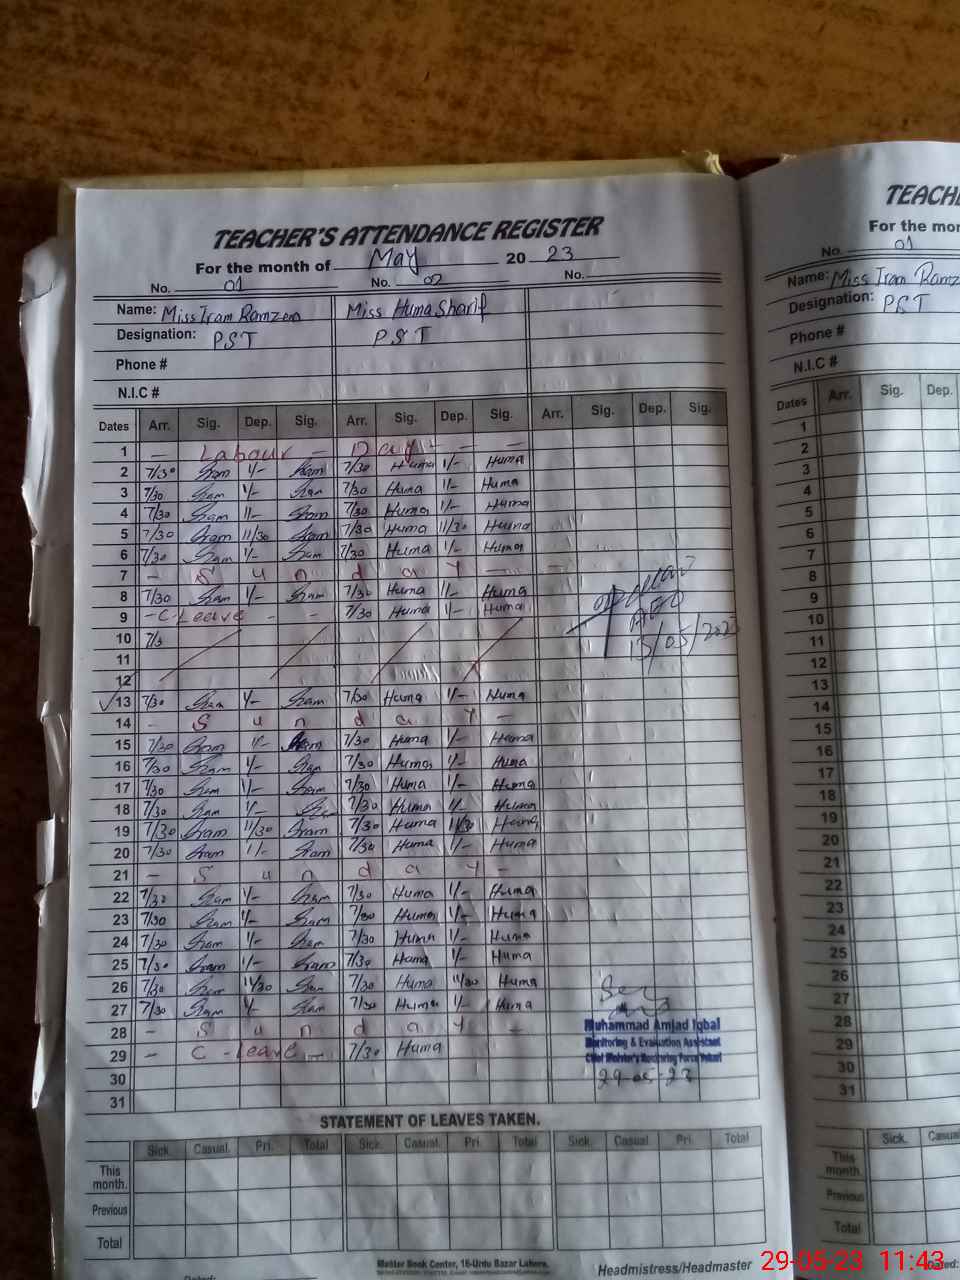 TEACHER'S ATTENDANCE REGISTER
For the month of May 20 23
No. 01 No. 02 No.
Name: Miss Iram Ramzan Miss Huma Sharif
Designation: PST PST
Phone #
N.I.C #
Dates Arr. Sig. Dep. Sig. Arr. Sig. Dep. Sig. Arr. Sig. Dep. Sig.
1 - Labour - Day - - -
2 7/30 Iram 1/- Iram 7/30 Huma 1/- Huma
3 7/30 Iram 1/- Iram 7/30 Huma 1/- Huma
4 7/30 Iram 1/- Iram 7/30 Huma 1/- Huma
5 7/30 Iram 11/30 Iram 7/30 Huma 11/30 Huma
6 7/30 Iram 1/- Iram 7/30 Huma 1/- Huma
7 - S u n d a y -
8 7/30 Iram 1/- Iram 7/30 Huma 1/- Huma
9 - C-Leave - - 7/30 Huma 1/- Huma
10 7/3
11
12
13 7/30 Iram 1/- Iram 7/30 Huma 1/- Huma
14 - S u n d a y -
15 7/30 Iram 1/- Iram 7/30 Huma 1/- Huma
16 7/30 Iram 1/- Iram 7/30 Huma 1/- Huma
17 7/30 Iram 1/- Iram 7/30 Huma 1/- Huma
18 7/30 Iram 1/- Iram 7/30 Huma 1/- Huma
19 7/30 Iram 11/30 Iram 7/30 Huma 11/30 Huma
20 7/30 Iram 1/- Iram 7/30 Huma 1/- Huma
21 - S u n d a y -
22 7/30 Iram 1/- Iram 7/30 Huma 1/- Huma
23 7/30 Iram 1/- Iram 7/30 Huma 1/- Huma
24 7/30 Iram 1/- Iram 7/30 Huma 1/- Huma
25 7/30 Iram 1/- Iram 7/30 Huma 1/- Huma
26 7/30 Iram 11/30 Iram 7/30 Huma 11/30 Huma
27 7/30 Iram 1/- Iram 7/30 Huma 1/- Huma
28 - S u n d a y -
29 - C-leave - 7/30 Huma
30
31
AEO
15/05/2023
Muhammad Amjad Iqbal
Monitoring & Evaluation Assistant
29-05-23
STATEMENT OF LEAVES TAKEN.
Sick. Casual. Pri. Total Sick. Casual. Pri. Total Sick. Casual. Pri. Total
This month.
Previous
Total
Master Book Center, 16-Urdu Bazar Lahore.
Dated:
Headmistress/Headmaster
TEACH
For the mon
No. 01
Name: Miss Iram Ramz
Designation: PST
Phone #
N.I.C #
Dates Arr. Sig. Dep.
1
2
3
4
5
6
7
8
9
10
11
12
13
14
15
16
17
18
19
20
21
22
23
24
25
26
27
28
29
30
31
Sick. Casua
This month.
Previous
Total
29-05-23 11:43